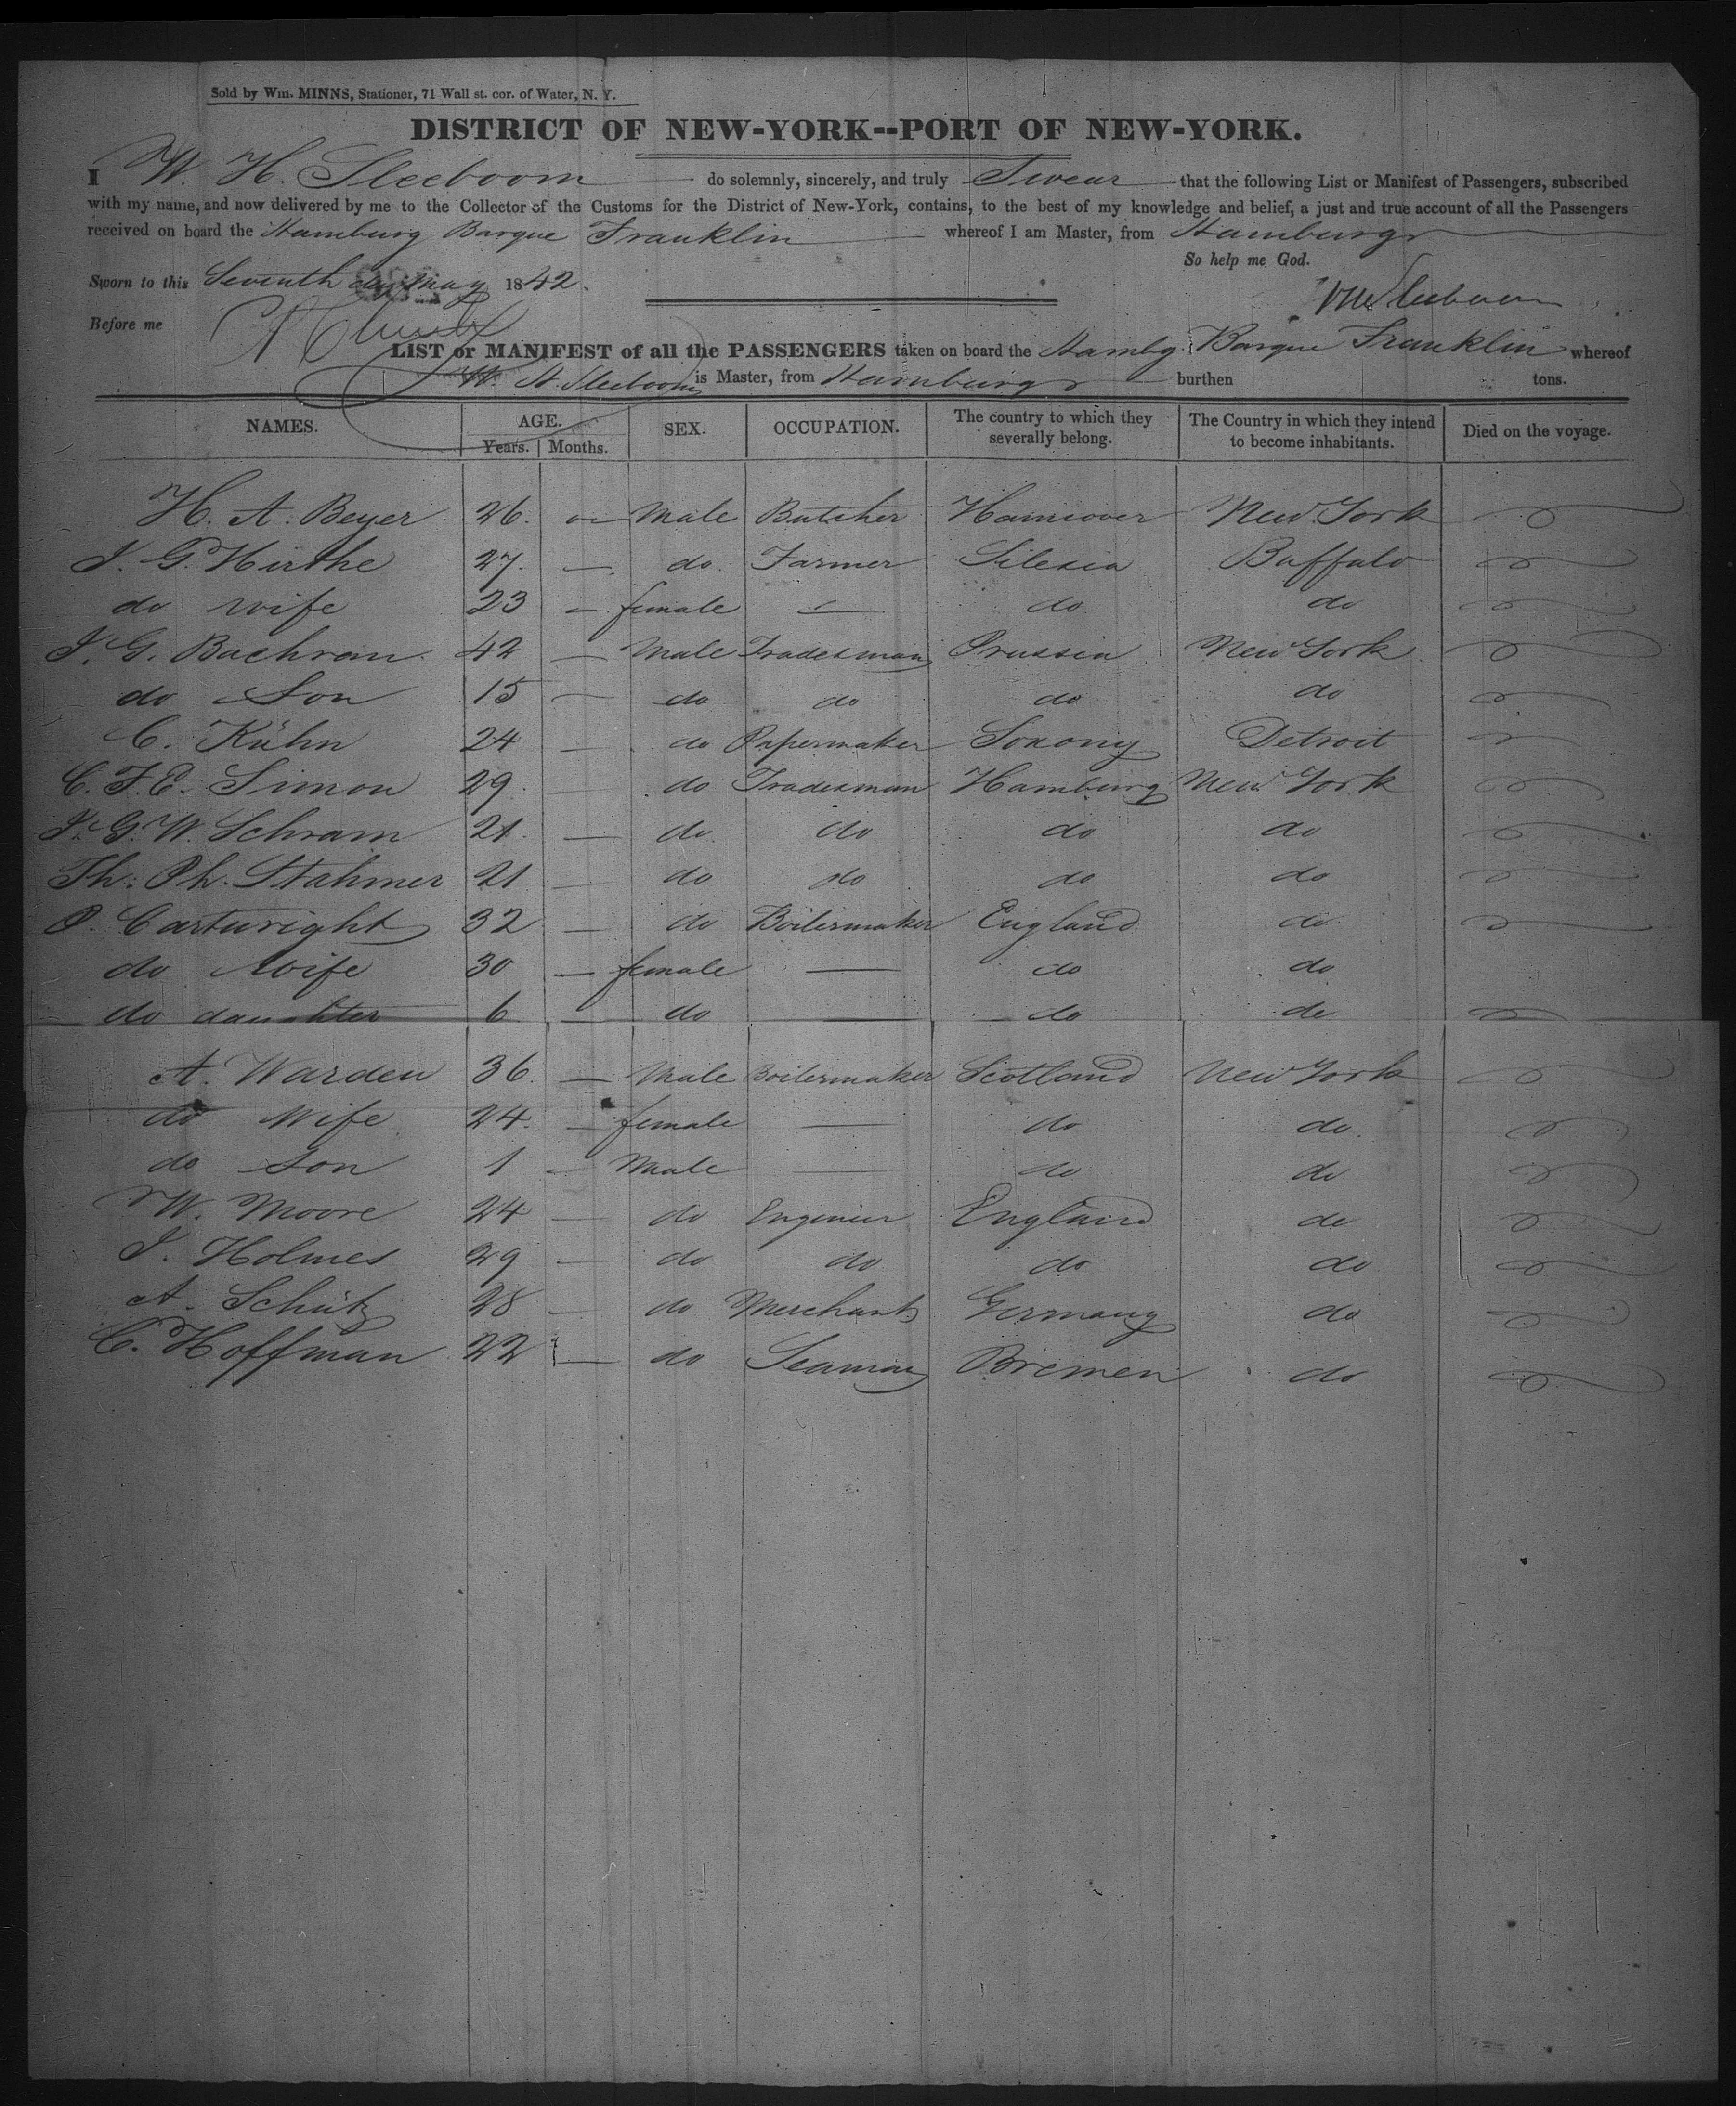 Sold by Wm. MINNS, Stationer, 71 Wall st. cor. of Water, N. Y.
DISTRICT OF NEW-YORK--PORT OF NEW-YORK.
I W. H. Sleeboom do solemnly, sincerely, and truly Swear that the following List or Manifest of Passengers, subscribed
with my name, and now delivered by me to the Collector of the Customs for the District of New-York, contains, to the best of my knowledge and belief, a just and true account of all the Passengers
received on board the Hamburg Barque Franklin whereof I am Master, from Hamburg
So help me God.
Sworn to this Seventh day May 1842.
WHSleeboom
Before me
LIST or MANIFEST of all the PASSENGERS taken on board the Hambg. Barque Franklin whereof
W. H. Sleeboom is Master, from Hamburg burthen tons.
NAMES. AGE. Years. Months. SEX. OCCUPATION. The country to which they severally belong. The Country in which they intend to become inhabitants. Died on the voyage.
H. A. Beyer 26. — Male Butcher Hannover New York
J. G. Hirthe 27. — do. Farmer Silesia Buffalo
do wife 23 — female — do do
J. G. Bachran 42 — Male Tradesman Prussia New York
do Son 15 — do do do do
C. Kühn 24 — do Papermaker Soxony Detroit
C. F. E. Simon 29. — do Tradesman Hamburg New York
J. G. W. Schram 21. — do. do do do
Th: Ph. Stahmer 21 — do do do do
P. Cartwright 32 — do Boilermaker England do
do Wife 30 — female — do do
do daughter 6 — do — do do
A. Warden 36. — Male Boilermaker Scotland New York
do Wife 24. — female — do do.
do Son 1 — Male — do do
W. Moore 24 — do Enginier England do
J. Holmes 29 — do do do do
A. Schütz 28 — do Merchant Germany do
C. Hoffman 22 — do Seaman Bremen do